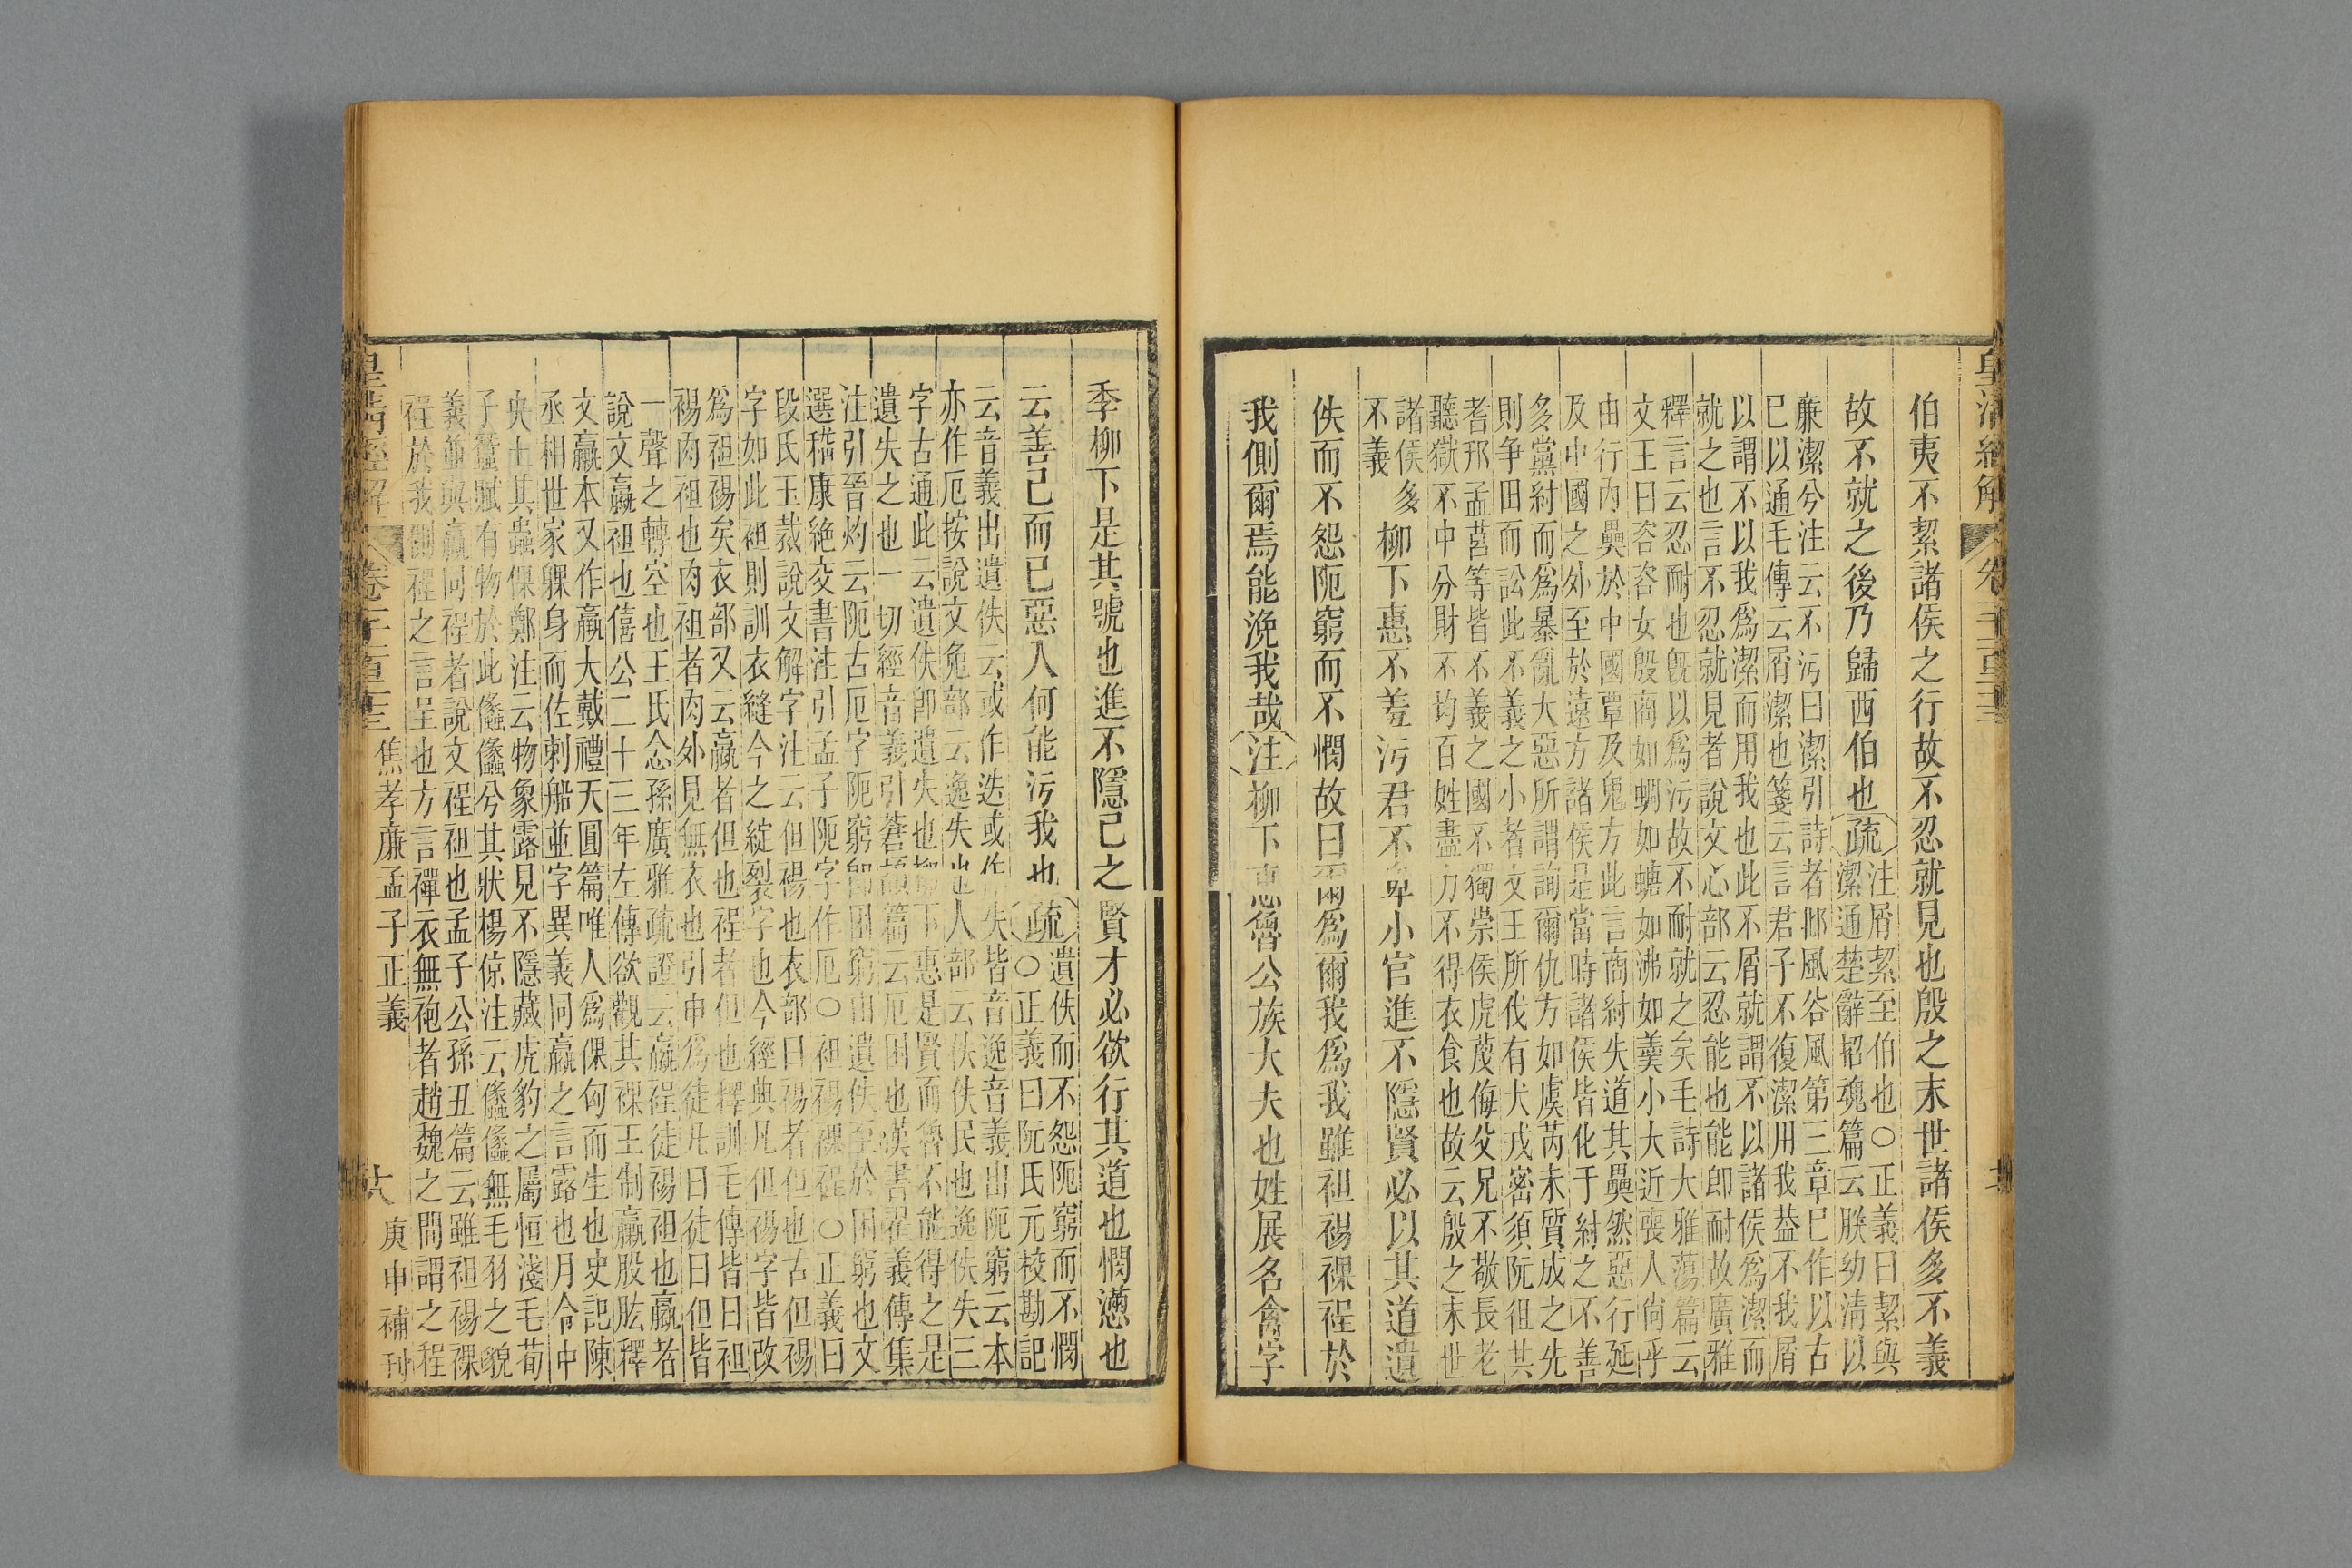 皇清經解
伯夷不絜諸侯之行故不忍就見也殷之末世諸侯多不義
故不就之後乃歸西伯也疏注屑絜至伯也○正義曰絜與
潔通楚辭招魂篇云朕幼淸以
廉潔兮注云不污曰潔引詩者邶風谷風第三章巳作以古
巳以通毛傳云屑潔也箋云言君子不復潔用我葢不我屑
以謂不以我爲潔而用我也此不屑就謂不以諸侯爲潔而
就之也言不忍就見者說文心部云忍能也能卽耐故廣雅
釋言云忍耐也旣以爲污故不耐就之矣毛詩大雅蕩篇云
文王曰咨咨女殷商如蜩如螗如沸如羹小大近喪人尙乎
由行內奰於中國覃及鬼方此言商紂失道其奰然惡行延
及中國之外至於遠方諸侯是當時諸侯皆化于紂之不善
多黨紂而爲暴亂大惡所謂詢爾仇方如虞芮未質成之先
則争田而訟此不義之小者文王所伐有犬戎密須阮徂共
耆邘孟莒等皆不義之國不獨崇侯虎蔑侮父兄不敬長老
聽獄不中分財不均百姓盡力不得衣食也故云殷之末世
諸侯多
不義
柳下惠不羞污君不卑小官進不隱賢必以其道遺
佚而不怨阨窮而不憫故曰爾爲爾我爲我雖袒裼裸裎於
我側爾焉能浼我哉注柳下惠魯公族大夫也姓展名禽字
季柳下是其號也進不隱己之賢才必欲行其道也憫懣也
云善己而已惡人何能污我也疏遺佚而不怨阨窮而不憫
○正義曰阮氏元校勘記
云音義出遺佚云或作迭或作失皆音逸音義出阨窮云本
亦作厄按說文兔部云逸失也人部云佚佚民也逸佚失三
字古通此云遺佚卽遺失也柳下惠是賢而魯不能得之是
遺失之也一切經音義引蒼頡篇云厄困也漢書翟義傳集
注引晉灼云阨古厄字阨窮卽困窮由遺佚至於困窮也文
選嵇康絶交書注引孟子阨字作厄○袒裼裸裎○正義曰
段氏玉裁說文解字注云但裼也衣部曰裼者但也古但裼
字如此袒則訓衣縫今之綻裂字也今經典凡但裼字皆改
爲袒裼矣衣部又云臝者但也裎者但也釋訓毛傳皆曰袒
裼肉袒也肉袒者肉外見無衣也引申爲徒凡曰徒曰但皆
一聲之轉空也王氏念孫廣雅疏證云臝裎徒裼袒也臝者
說文臝袒也僖公二十三年左傳欲觀其裸王制臝股肱釋
文臝本又作𦣄大戴禮天圓篇唯人爲倮匈而生也史記陳
丞相世家躶身而佐刺船並字異義同臝之言露也月令中
央土其蟲倮鄭注云物象露見不隱藏虎豹之屬恒淺毛荀
子蠶賦有物於此㒩㒩兮其狀楊倞注云㒩㒩無毛羽之貌
義並與臝同裎者說文裎袒也孟子公孫丑篇云雖袒裼裸
裎於我側裎之言呈也方言襌衣無袍者趙魏之間謂之裎
焦孝廉孟子正義
庚申補刊